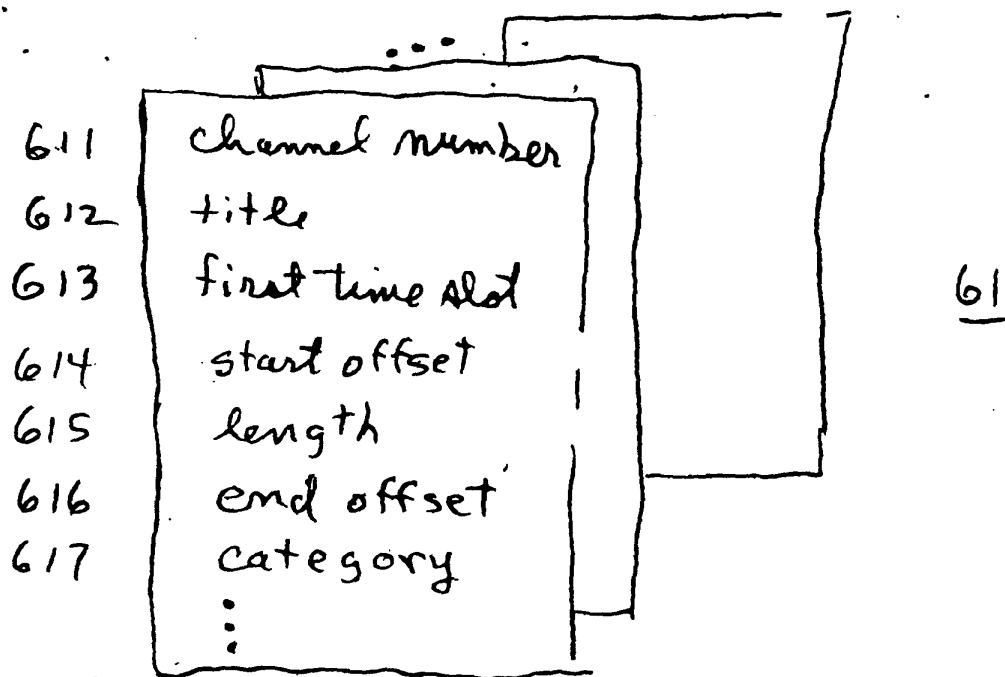 ...
611 channel number
612 title
613 first time slot
614 start offset
61
615 length
616 end offset
617 category
⋮